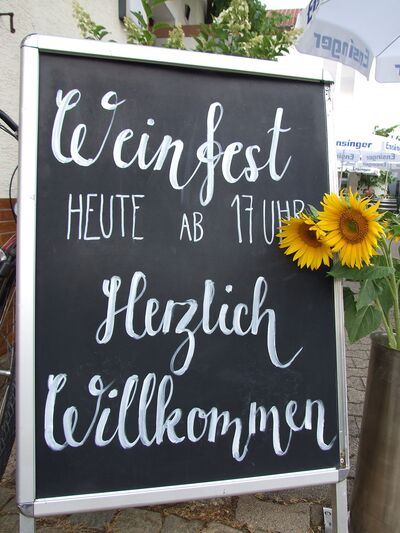 Weinfest
HEUTE AB 17 UHR
Herzlich
Willkommen
Ensinger
Ensinger
Ensinger